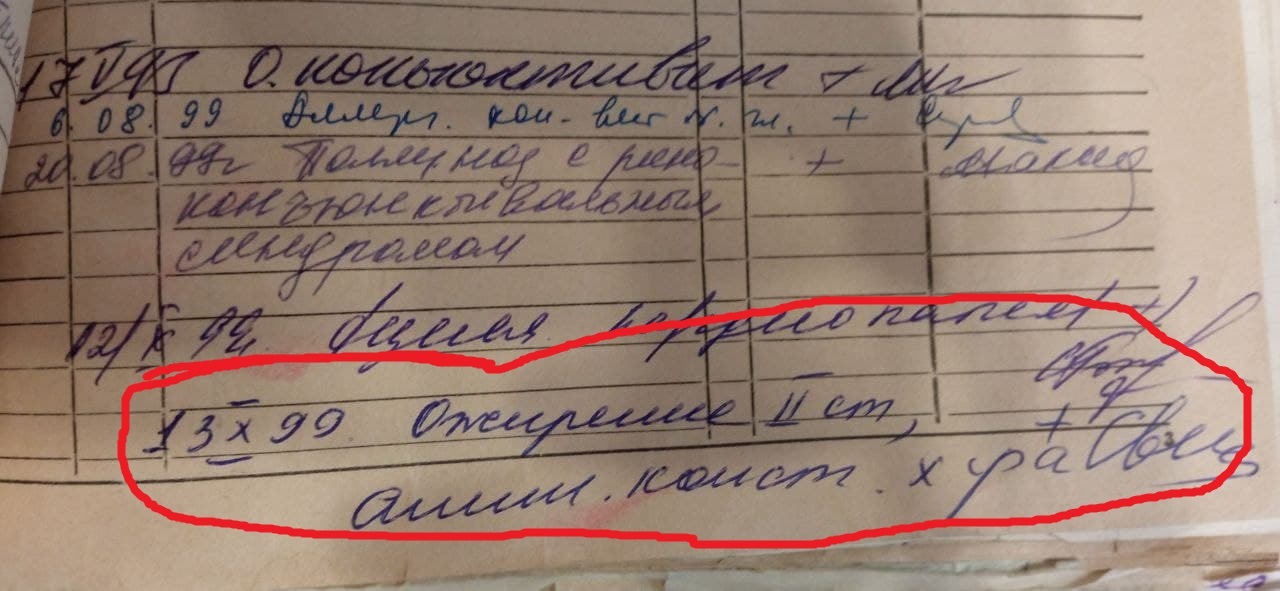 17 VI 95 О. конъюнктивит +
6. 08. 99 Аллерг. кон-вит л. гл. +
20. 08. 99г Поллиноз с рино- +
конъюнктивальным
синдромом
12/X 99. кардиопатия (+)
13 X 99 Ожирение II ст,
алим. конст. х-ра +